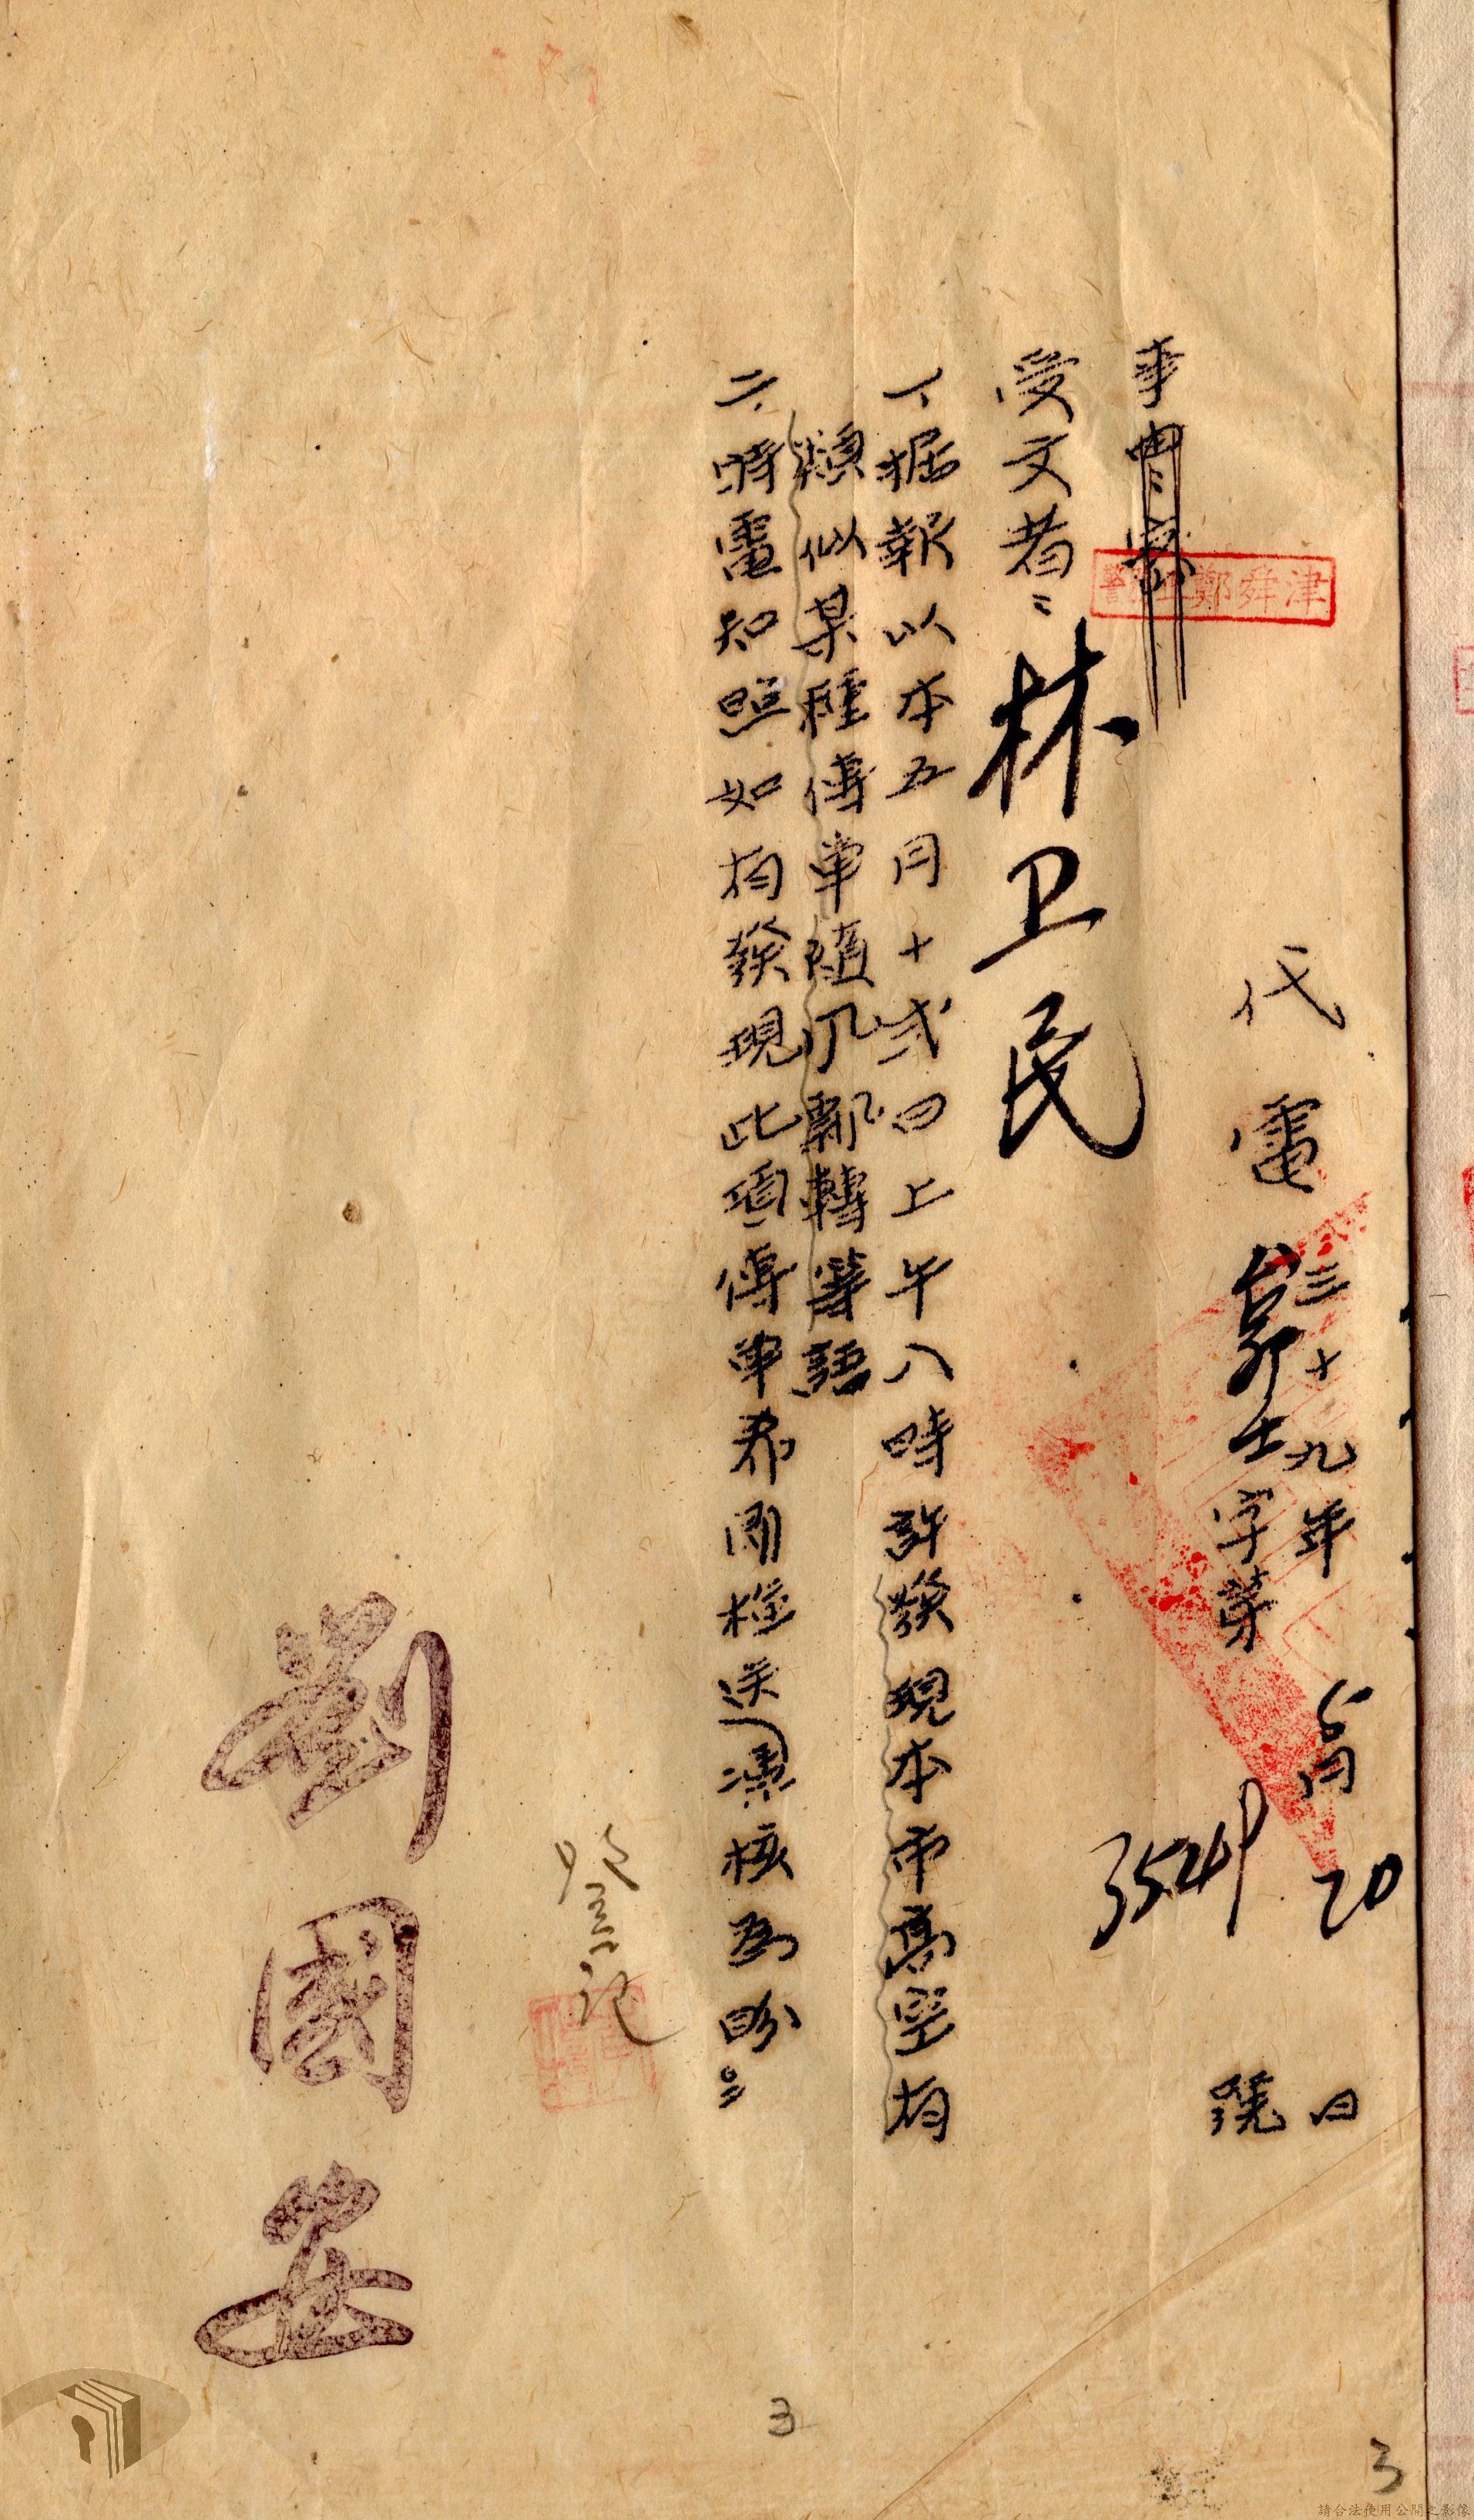 代電
三十九年5月20日
字第3524號
事由:
受文者:林卫民
一、据報以本五月十弍日上午八時許發現本市高空有
類似某種傳單隨風飄轉等語
二、特電知照如有發現此項傳單希閱檢送憑核為盼
登記
劉國安
鄭舜津
3
3
請合法使用公開之影像